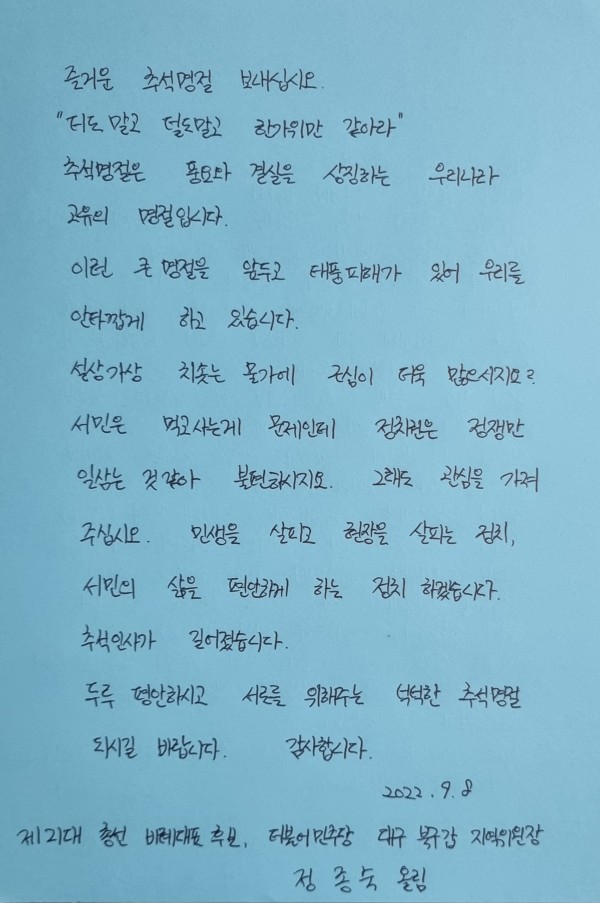 즐거운 추석명절 보내십시오.
"더도 말고 덜도말고 한가위만 같아라"
추석명절은 풍요와 결실을 상징하는 우리나라
고유의 명절입니다.
이런 큰 명절을 앞두고 태풍피해가 있어 우리를
안타깝게 하고 있습니다.
설상가상 치솟는 물가에 근심이 더욱 많으시지요?
서민은 먹고사는게 문제인데 정치권은 정쟁만
일삼는 것 같아 불편하시지요. 그래도 관심을 가져
주십시오. 민생을 살피고 현장을 살피는 정치,
서민의 삶을 편안하게 하는 정치 하겠습니다.
추석인사가 길어졌습니다.
두루 평안하시고 서로를 위해주는 넉넉한 추석명절
되시길 바랍니다. 감사합니다.
2022. 9. 8
제21대 총선 비례대표 후보, 더불어민주당 대구 북구갑 지역위원장
정 종 숙 올림